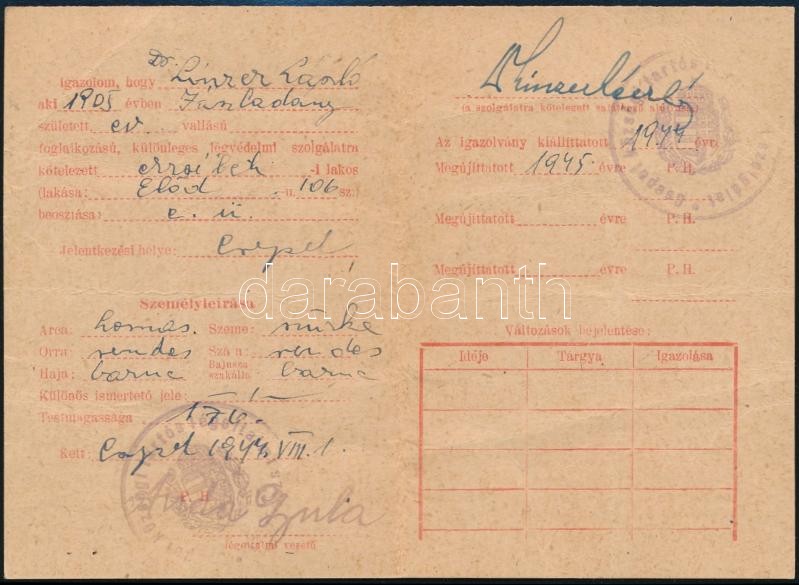 Igazolom, hogy Dr. Linzer László
aki 1905 évben Jászladány
született ev. vallású
foglalkozású, különleges légvédelmi szolgálatra
kötelezett -i lakos
(lakása: Előd u. 106 sz.)
beosztása: e. ü.
Jelentkezési helye: Csepel
Személyleírása
Arca: homás. Szeme: szürke
Orra: rendes Szája: rendes
Haja: barna Bajusza szakálla: barna
Különös ismertető jele: - 1 -
Testmagassága 176.
Kelt: Csepel 1944. VIII. 1.
P. H.
Gyula
légoltalmi vezető
Dr Linzer László
(a szolgálatra kötelezett sajátkezű aláírása)
Az igazolvány kiállíttatott 1944 évre
Megújíttatott 1945. évre P. H.
Megújíttatott évre P. H.
Megújíttatott évre P. H.
Változások bejelentése:
Ideje Tárgya Igazolása
darabanth